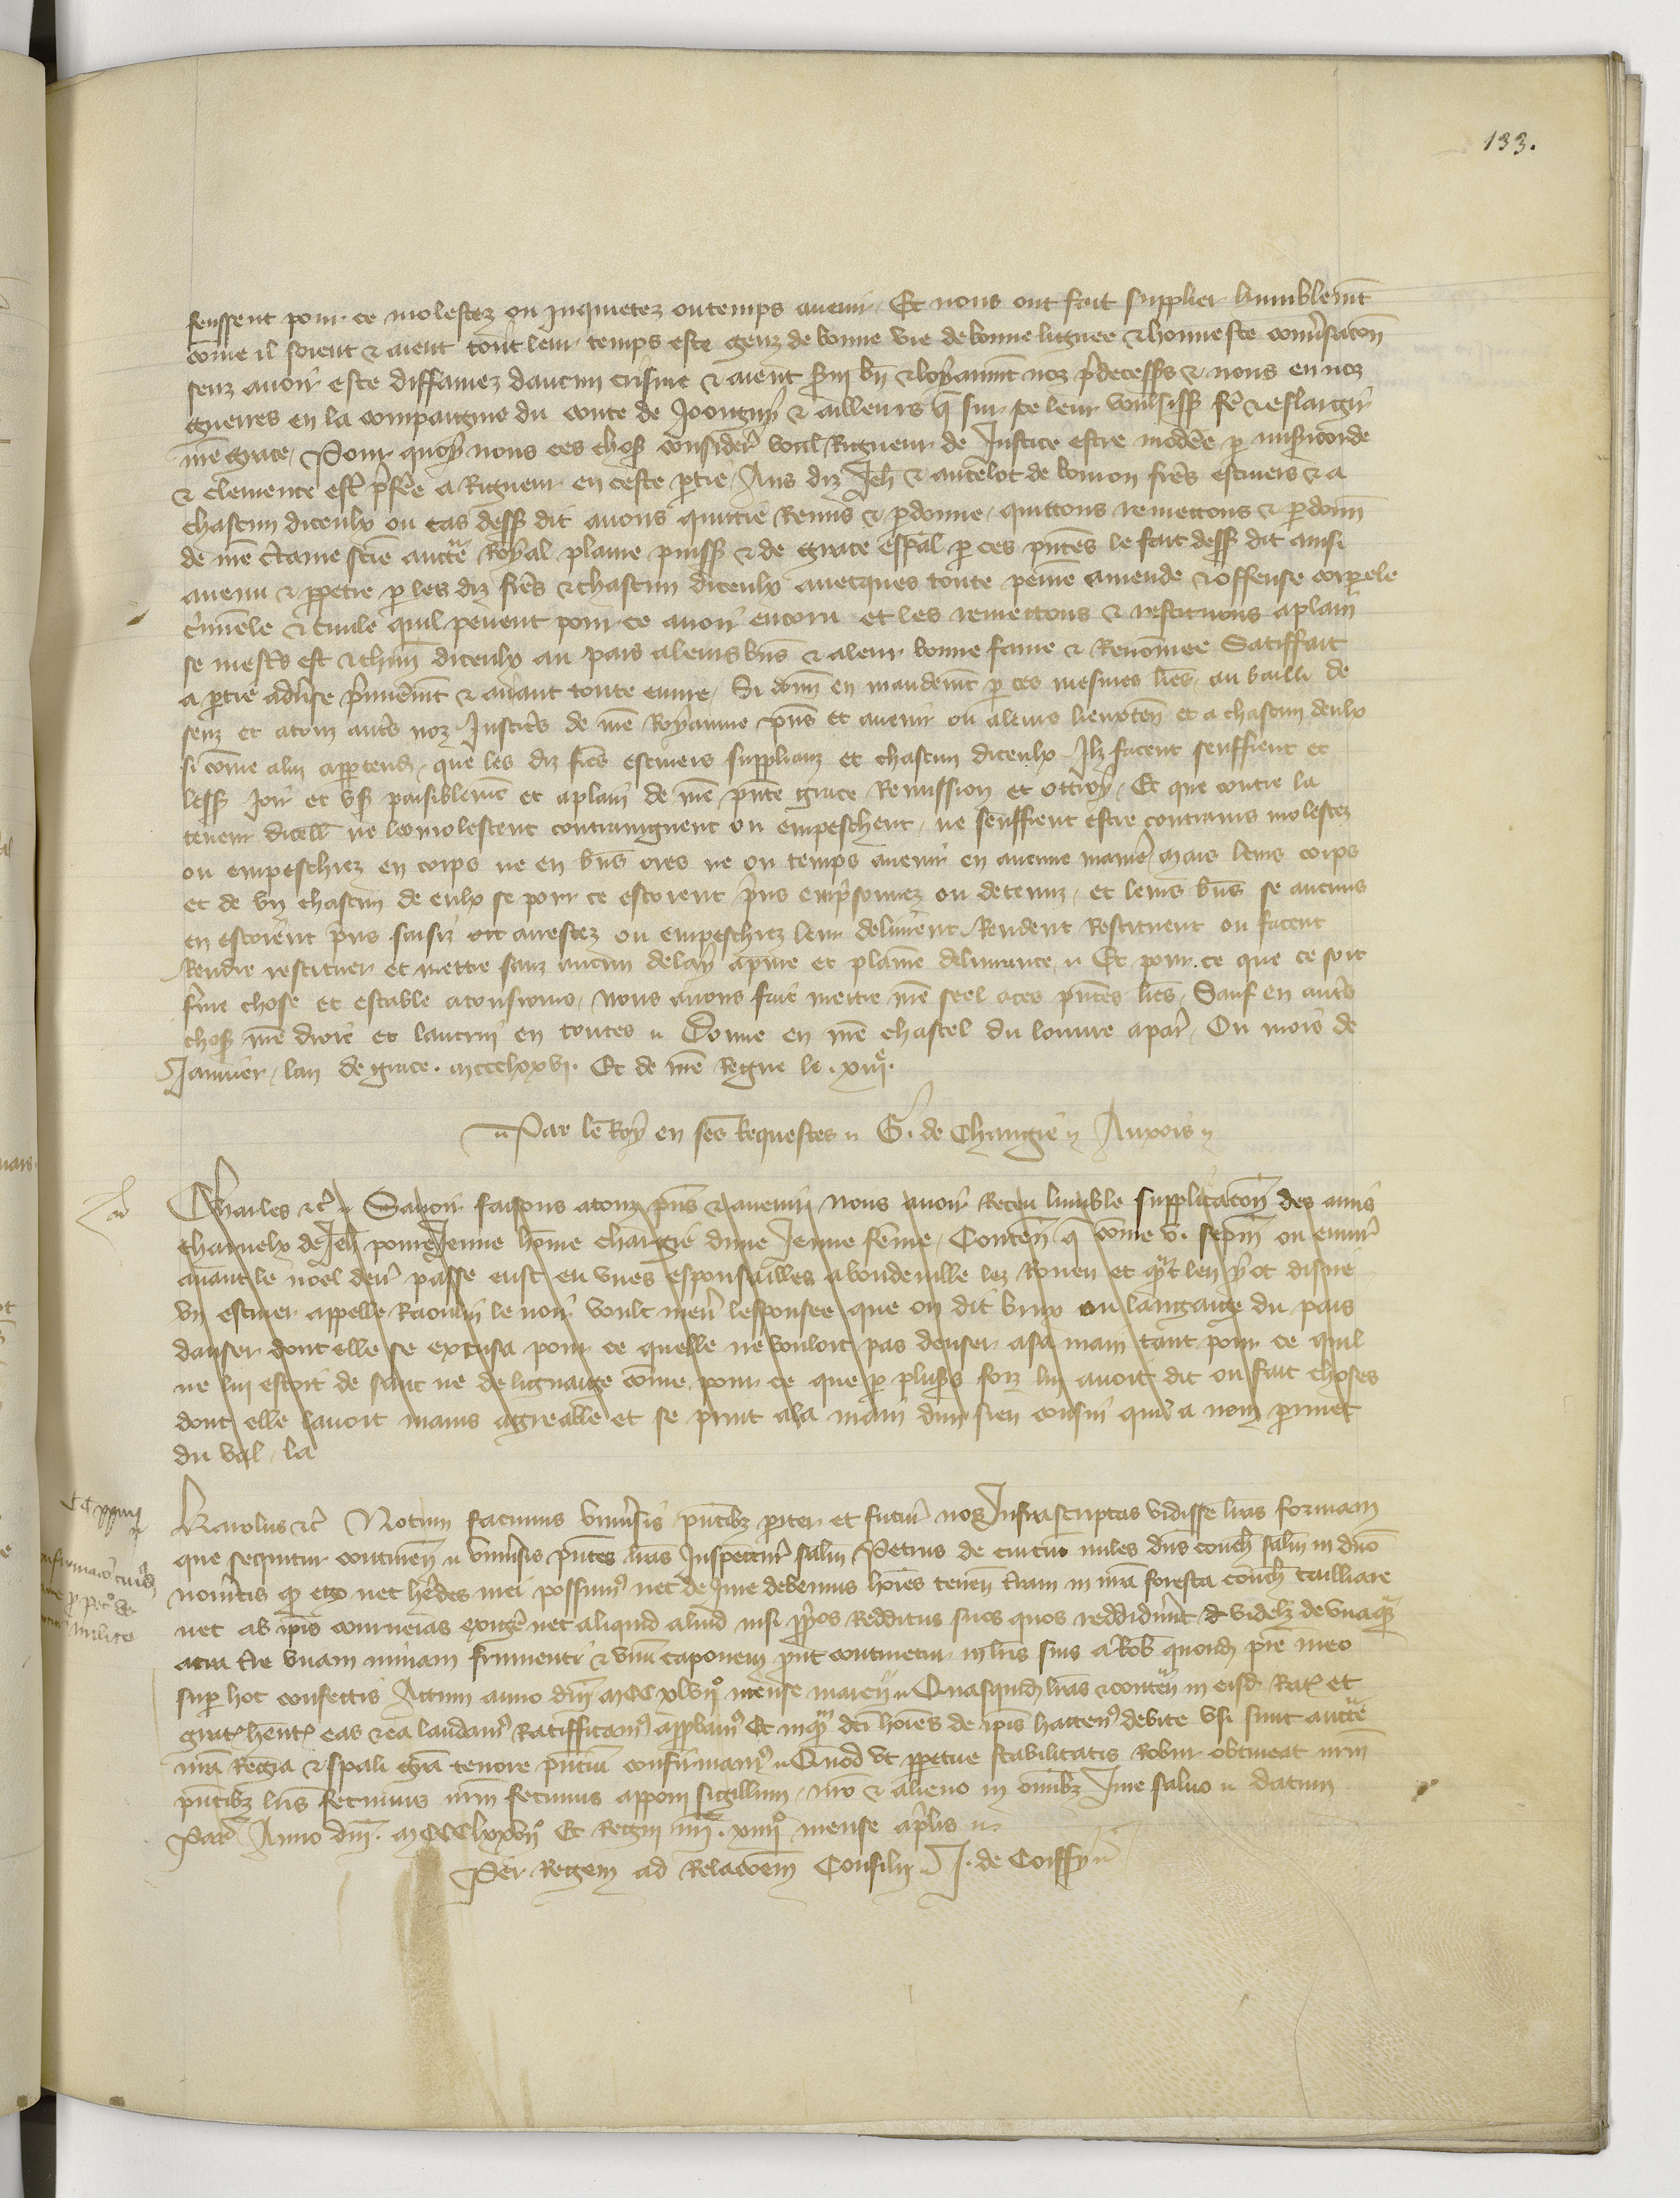 133.
feussent pour ce molestez ou inquietez ou temps avenir. Et nous ont fait supplier humblemt
come il soient & aient tout leur temps este genz de bonne vie de bonne lignee & honneste convsacon
senz avoir este diffamez daucun crisme & aient svi bn & loyaumt noz pdecesss & nous en noz
guerres en la compaignie du conte de Joongny & ailleurs q sur ce leur voulsiss fe & eslargir
nre grace. Pour quoy nous ces choss consider voul Rigueur de Justice estre modere p misicorde
& clemence est pfere a Rigueur en ceste ptie Aus diz Jeh & ancelot de frers escuiers & a
chascun diceulx ou cas dess dit avons quictie Remis & pdonne, quittons remettons & pdonn
de nre ctaine science aucte Royal plaine puiss & de grace espal p ces pntes le fait dess dit ainsi
avenu & ppetre p les diz fres & chascun diceulx avecques toute peine amende & offense corpele
cminele & civile quil pevent pour ce avoir encoru et les remettons & restituons a plain
se mests est & chun diceulx au pais a leurs bns & a leur bonne fame & Renomee Satiffait
a ptie advse pmieremt & avant toute euvre. Si donn en mandemt p ces mesmes lres au bailli de
senz et a touz auts noz Justics de nre Royaume pns et avenir ou a leurs lieuxten et a chascun deulx
si come a lui apptend, que les diz fres escuiers supplianz et chascun diceulx Ilz facent seuffrent et
less Joir et us paisiblemt et a plain de nre pnte grace Remission et ottroy. Et que contre la
teneur dicell ne les molestent contraingnent ou empeschent, ne seuffrent estre contrains molestez
ou empeschiez en corps ne en bns ores ne ou temps avenir en aucune manie mais leurs corps
et de un chascun de eulx se pour ce estoient pris empsonnez ou detenuz, et leurs bns se aucuns
en estoient pris saisiz ou arrestez ou empeschiez leur delivrent Rendent Restituent ou facent
Rendre restituer et mettre sanz aucun delay a pure et plaine delivrance. Et pour ce que ce soit
ferme chose et estable a tousjours, nous avons fait mettre nre seel a ces pntes lres, Sauf en auts
choss nre droit et lautrui en toutes. Donne en nre chastel du louvre a par. Ou mois de
Janvier, lan de grace. mccclxxvj. Et de nre Regne le. xiije.
Par le Roy en ses Requestes. G. de Changie. Auxois.
Charles &c. Savoir faisons a touz pns & avenir, Nous avoir Receu humble supplicacon des amis
charnelx de Jeh poure Jenne home chargie dune Jenne feme, Conten q come v. sepm ou envir
avant le noel derr passe eust eu unes espousailles a bondeville lez Rouen et qt len y ot disne
un escuier appelle Raoulin le noir voult men lespousee que on dit bruy ou langaige du pais
danser dont elle se excusa pour ce quelle ne vouloit pas denser a sa main tant pour ce quil
ne lui estoit de sanc ne de lignaige come pour ce que p pluss foiz lui avoit dit ou fait choses
dont elle lavoit mains agreable et se print a la main dun sien cousin qui a nom prinet
du val, la
Karolus &c Notum facimus univsis pntibz piter et futur nos Infrascriptas vidisse lras formam
que sequitur continen. Univsis pntes lras Inspectur salm Petrus de miles dns couch salm in dno
novitis q ego nec hedes mei possum nec de Jure debemus hoies tenen tram in nra foresta couch tailliare
nec ab ipis corveias exige nec aliquid aliud nisi pprios Redditus suos quos reddidunt & videlz de unaqq
acra tre unam minam frumenti & unu caponem put continetur in lris suis a Rob quond pre meo
sup hoc confectis Actum anno dni mccxlvijo mense marcij. Quasquid lras & conten in eisd Rat et
grat hent eas & ea laudam Ratifficam appbam Et inqm dci hoies de ipis hacten debite usi sunt aucte
nra Regia & spali gra tenore pntiu confirmam. Quod ut ppetue stabilitatis Robur obtineat nrm
pntibz lris fecimus nrm fecimus apponi sigillum, nro & alieno in omibz Jure salvo. datum
Par Anno dni. mccclxxvijo Et Regni nri. xiiijo mense aplis.
Per Regem ad Relacoem Consilij. J. de Coiffy